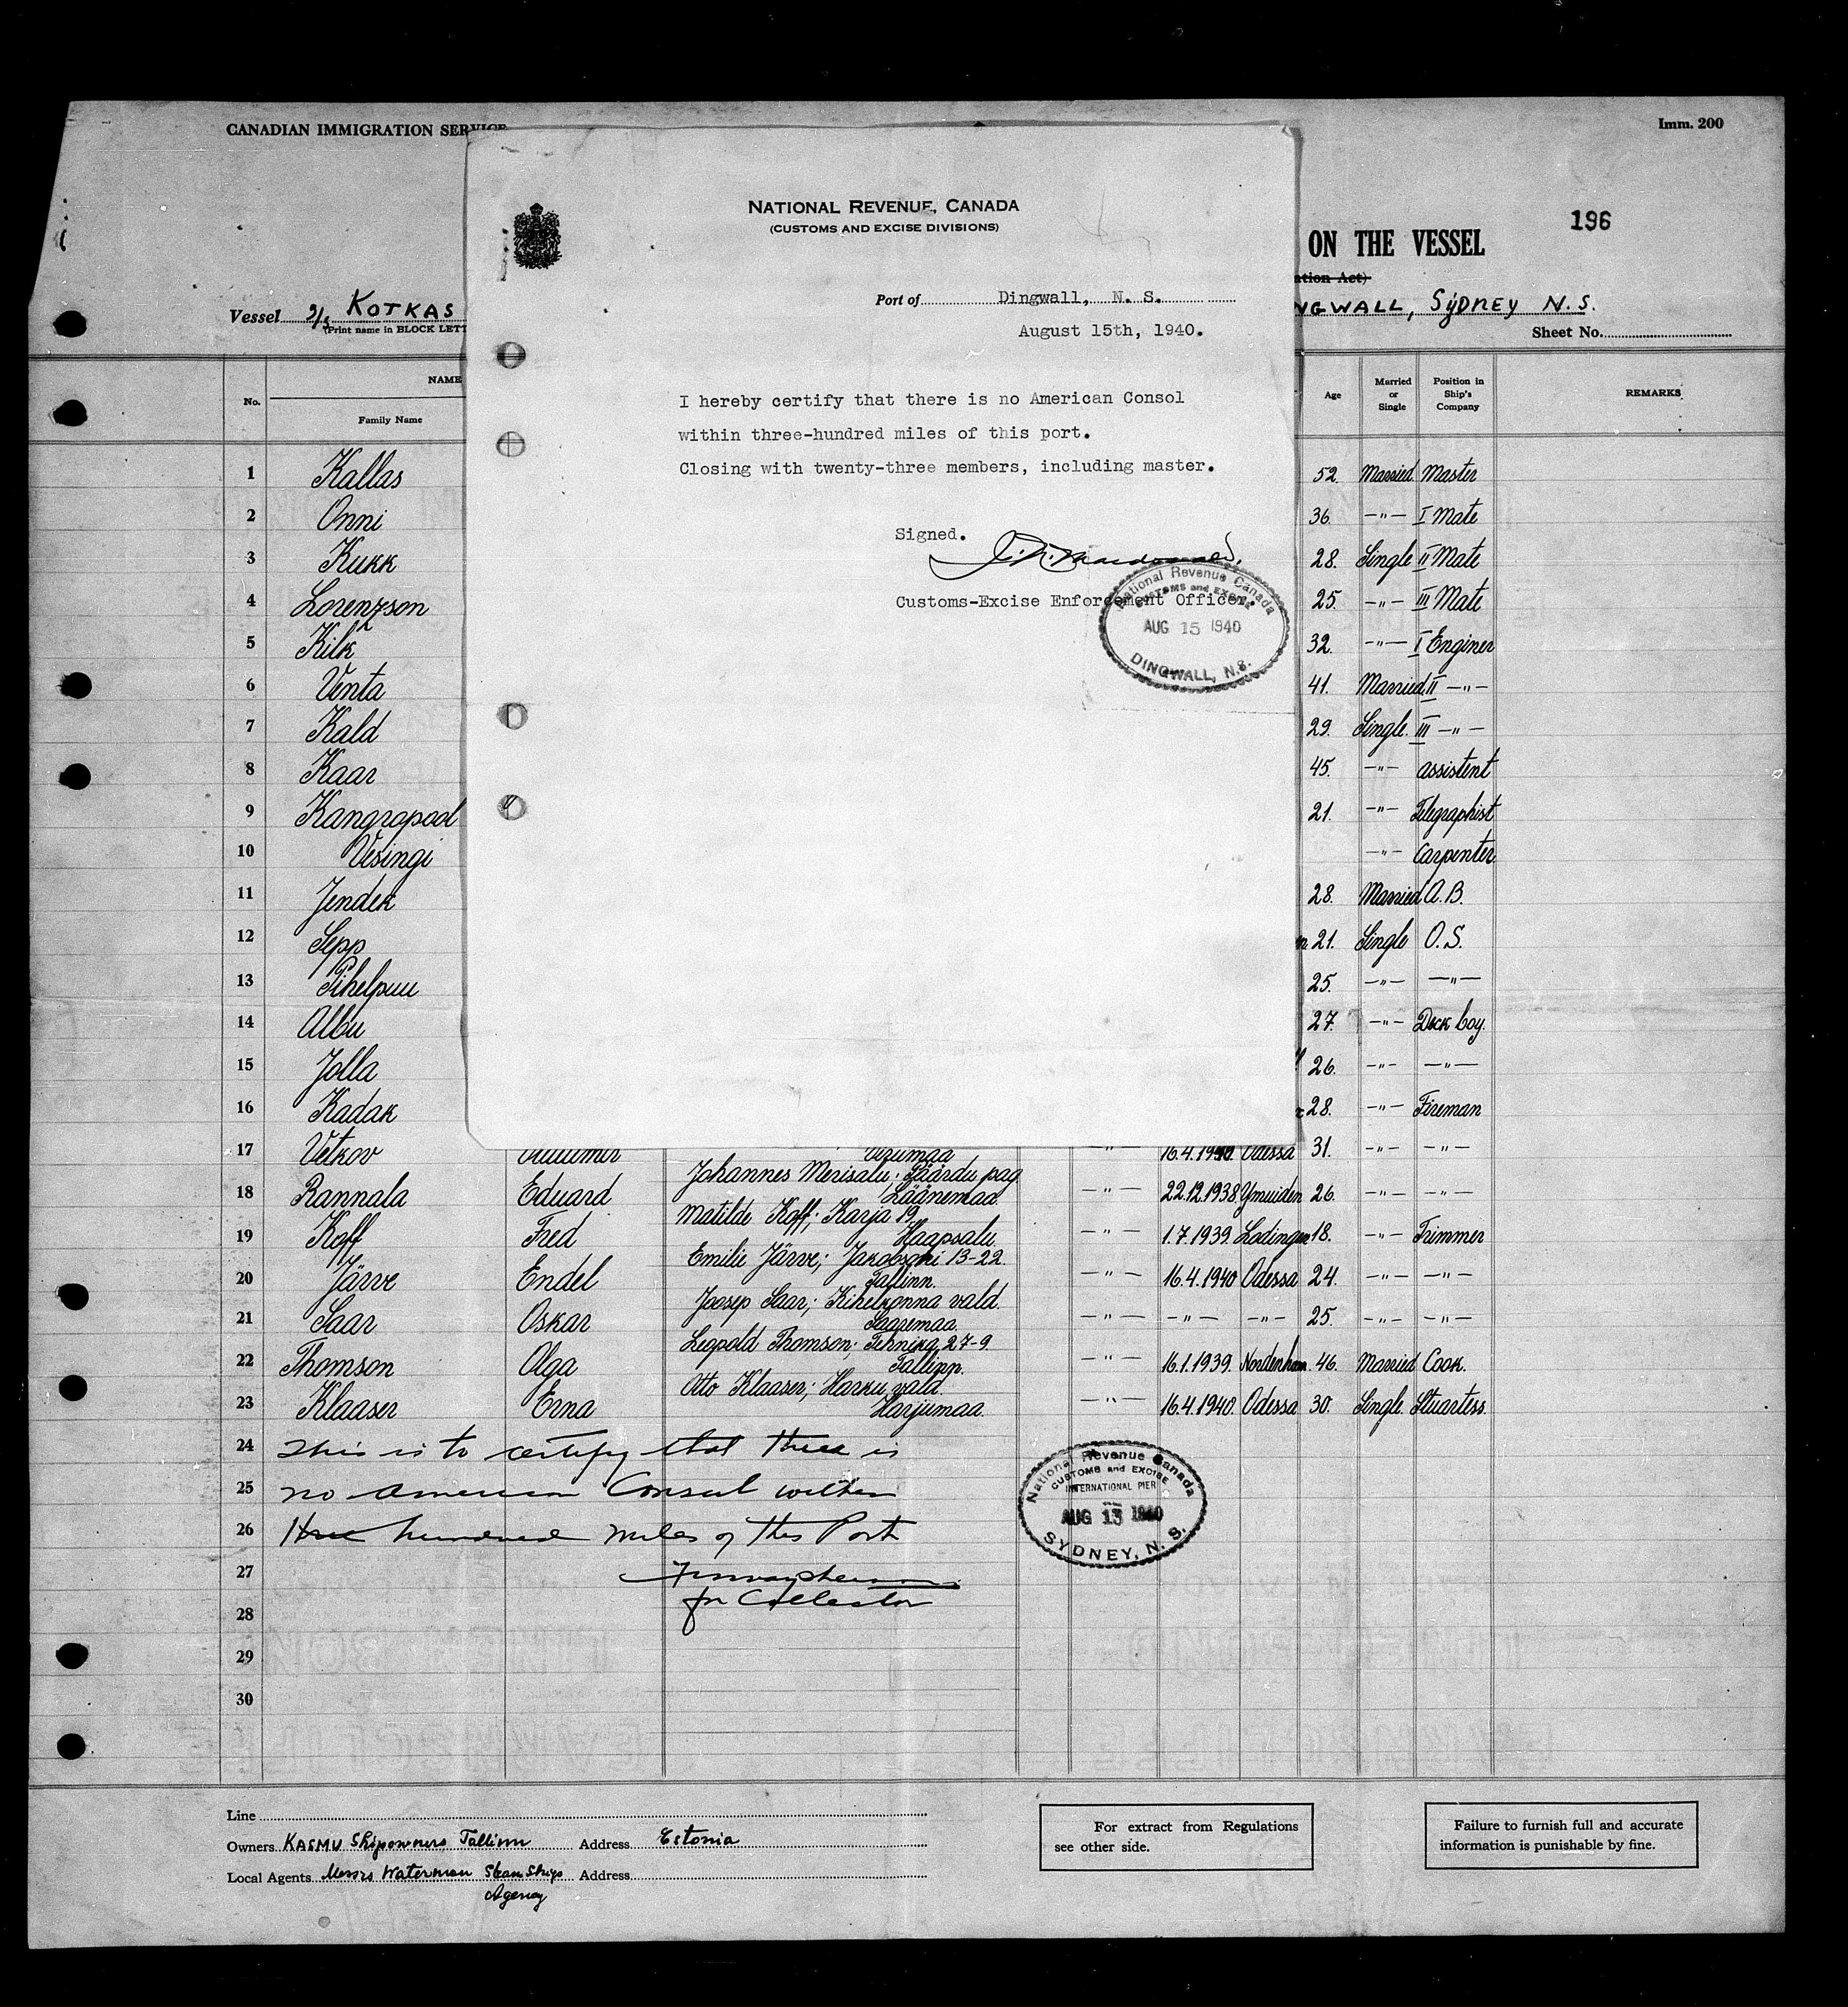 CANADIAN IMMIGRATION SERVICE
Imm. 200
196
ON THE VESSEL
ation Act)
Vessel S/S KOTKAS
(Print name in BLOCK LETT
NGWALL, SYDNEY N.S.
Sheet No.
NATIONAL REVENUE, CANADA
(CUSTOMS AND EXCISE DIVISIONS)
Port of Dingwall, N. S.
August 15th, 1940.
I hereby certify that there is no American Consol
within three-hundred miles of this port.
Closing with twenty-three members, including master.
Signed.
Customs-Excise Enforcement Officer.
National Revenue Canada
CUSTOMS and EXCISE
AUG 15 1940
DINGWALL, N.S.
No. NAME Family Name Age Married or Single Position in Ship's Company REMARKS
1 Kallas 52. Married Master
2 Onni 36. -"- I Mate
3 Kukk 28. Single II Mate
4 Lorenzson 25. -"- III Mate
5 Kilk 32. -"- I Enginer
6 Venta 41. Married II -"-
7 Kald 29. Single. III -"-
8 Kaar 45. -"- assistent
9 Kangropool 21. -"- Telegraphist
10 Vesingi -"- Carpenter
11 Jendek 28. Married A.B.
12 Sepp 21. Single O.S.
13 Pihelpuu 25. -"- -"-
14 Albu 27. -"- Deck boy.
15 Jolla 26. -"- -"-
16 Kadak 28. -"- Fireman
17 Vetkov -"- 16.4.1940. Odessa 31. -"- -"-
Johannes Merisalu; Päärdu pag
18 Rannala Eduard Läänemaa. -"- 22.12.1938. Ymuiden 26. -"- -"-
Matilde Koff; Karja 19
19 Koff Fred Haapsalu -"- 1.7.1939. Lodingen 18. -"- Trimmer
Emilie Järve; Jakobsoni 13-22.
20 Järve Endel Tallinn. -"- 16.4.1940 Odessa 24. -"- -"-
Joosep Saar; Kihelkonna vald.
21 Saar Oskar Saaremaa. -"- -"- -"- 25. -"- -"-
Leopold Thomson; Tehnika 27-9
22 Thomson Olga Tallinn. -"- 16.1.1939. Nordenham. 46. Married Cook.
Otto Klaaser; Harku vald.
23 Klaaser Erna Harjumaa. -"- 16.4.1940. Odessa 30. Single. Stuartess.
24 This is to certify that there is
25 no American Consul within
26 three hundred miles of this Port
27
for Collector
28
29
30
National Revenue Canada
CUSTOMS and EXCISE
INTERNATIONAL PIER
AUG 13 1940
SYDNEY, N. S.
Line
Owners KASMU Shipowners, Tallinn Address Estonia
Local Agents Messrs Waterman Steam Ships Address
Agency
For extract from Regulations
see other side.
Failure to furnish full and accurate
information is punishable by fine.